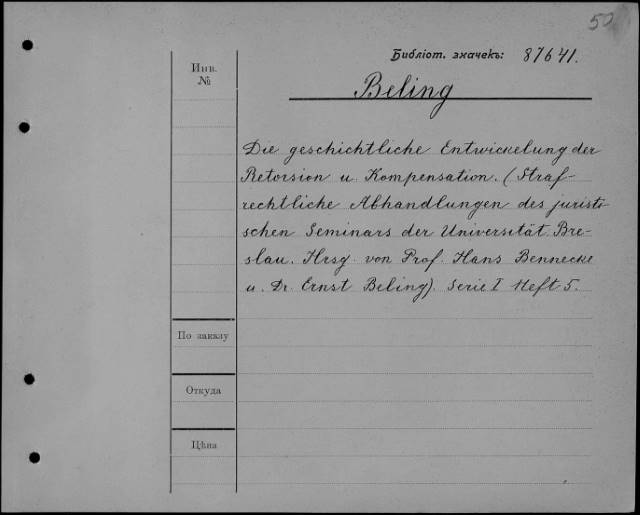 50
Библіот. значекъ: 87641.
Инв.
№
Beling
Die geschichtliche Entwickelung der
Retorsion u. Kompensation. (Straf-
rechtliche Abhandlungen des juristi-
schen Seminars der Universität Bre-
slau. Hrsg. von Prof. Hans Bennecke
u. Dr. Ernst Beling). Serie I Heft 5.
По заказу
Откуда
Цѣна